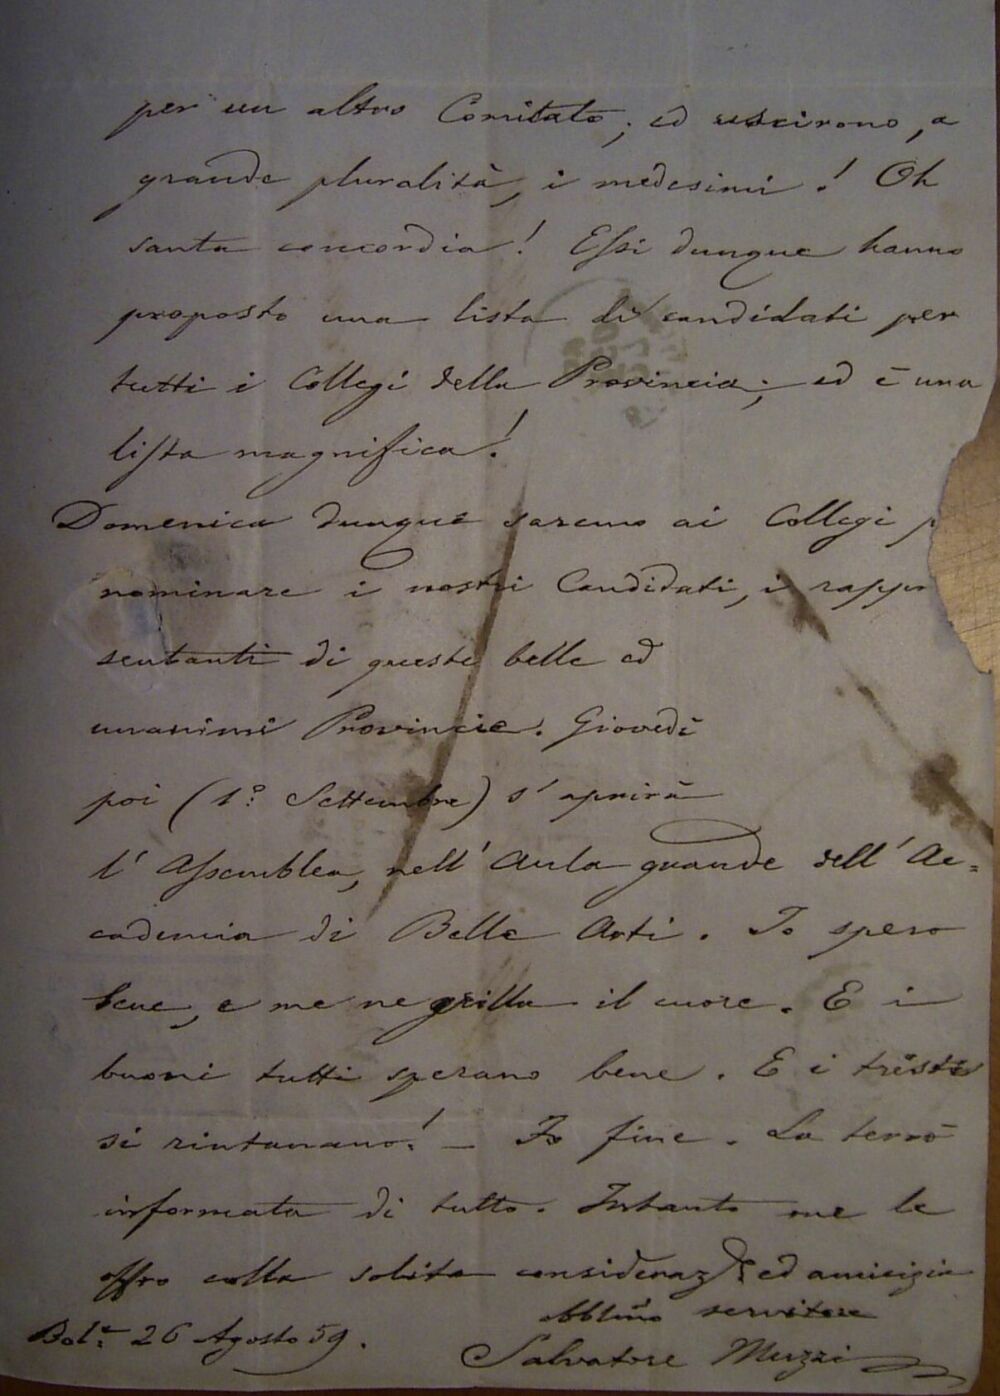 per un altro Comitato; ed uscirono, a
grande pluralità, i medesimi! Oh
santa concordia! Essi dunque hanno
proposto una lista di candidati per
tutti i Collegi della Provincia; ed è una
lista magnifica!
Domenica dunque saremo ai Collegi p
nominare i nostri Candidati, i rappre
sentanti di queste belle ed
unanimi Provincie. Giovedì
poi (1.º Settembre) s'aprirà
l'Assemblea, nell'Aula grande dell'Ac=
cademia di Belle Arti. Io spero
bene, e me ne grilla il cuore. E i
buoni tutti sperano bene. E i tristi
si rintanano! — Fo fine. La terrò
informata di tutto. Intanto me le
offro colla solita consideraz.e ed amicizia
Obblmo servitore
Bol.a 26 Agosto 59.
Salvatore Muzzi